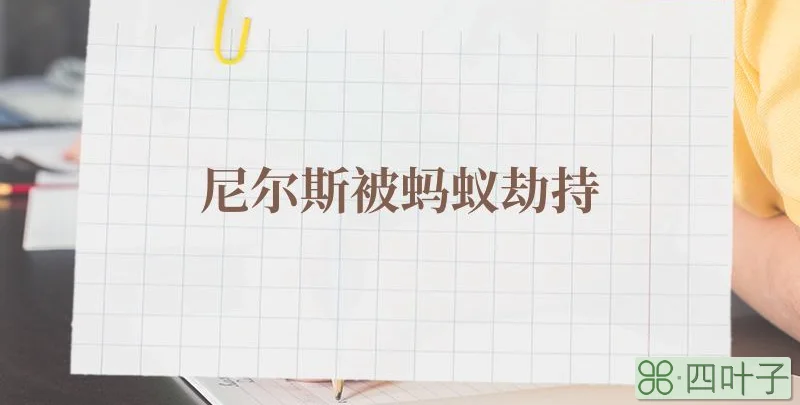 尼尔斯被蚂蚁劫持
四叶子